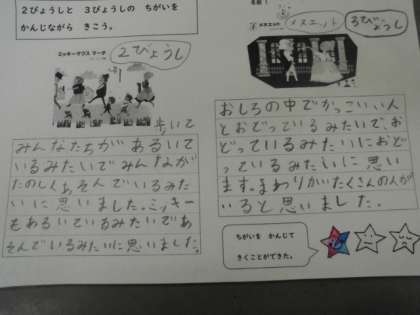 2びょうしと 3びょうしの ちがいを
かんじながら きこう。
ミッキーマウス マーチ
2びょうし
歩いて
みんなたちが あるいて
いるみたいで みんなが
たのしくあそんでいるみた
いに思いました。ミッキー
もあるいているみたいであ
そんでいるみたいに思いました。
メヌエット
メヌエット
3びょうし
おしろの中でかっこいい人
とおどっているみたいで、お
どっているみたいにおど
っているみたいに思い
ます。まわりがたくさんの人が
いると思いました。
ちがいを かんじて
きくことができた。